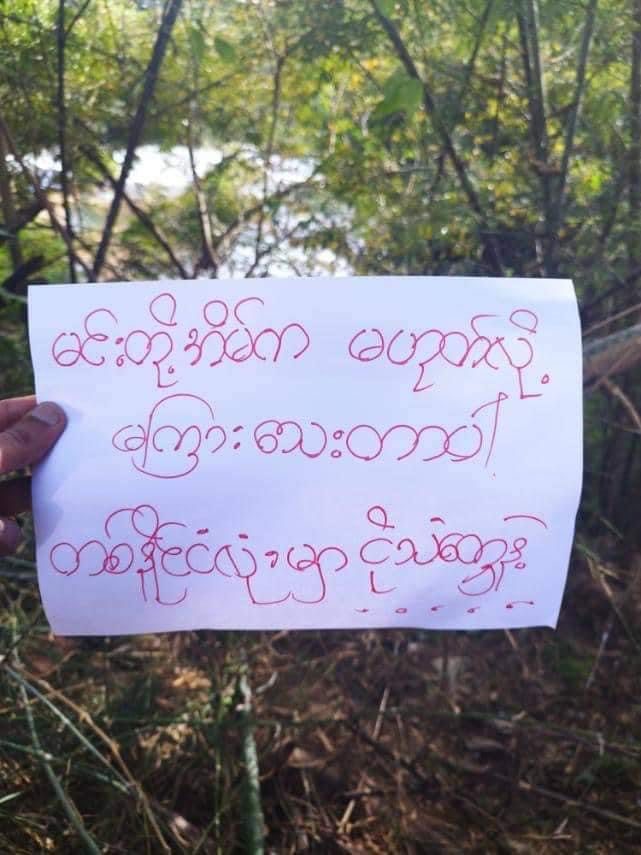 မင်းတို့အိမ်က မဟုတ်လို့
မကြားသေးတာပါ
တစ်နိုင်ငံလုံးမှာ ငိုသံတွေနဲ့.....